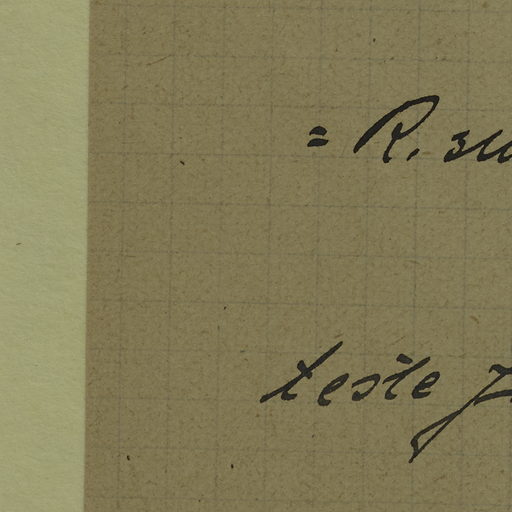 = R. su
teste J